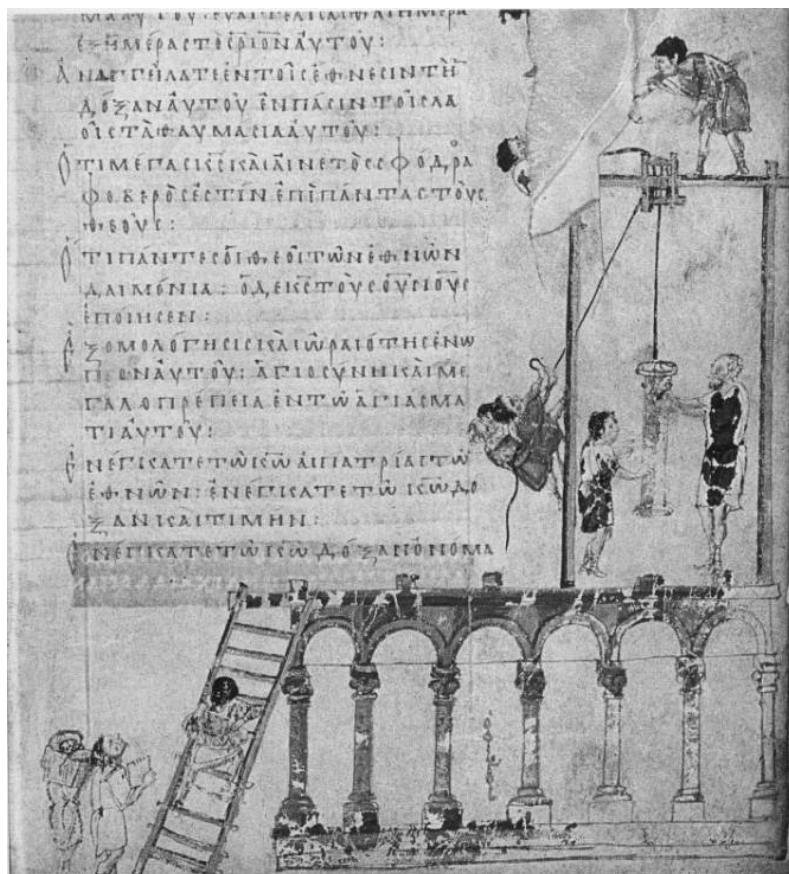 ΜΑ ΑΥΤΟΥ: ΕΥΑΓΓΕΛΙCΑCΘΑΙ ΗΜΕΡΑ
ΕΞ ΗΜΕΡΑC ΤΟ CΡΙΟΝ ΑΥΤΟΥ:
ΑΝΑΓΓΕΙΛΑΤΕ ΕΝ ΤΟΙC ΕΘΝΕCΙΝ ΤΗ̄
ΔΟΞΑΝ ΑΥΤΟΥ ΕΝ ΠΑCΙΝ ΤΟΙC ΛΑ
ΟΙC ΤΑ ΘΑΥΜΑCΙΑ ΑΥΤΟΥ:
ΟΤΙ ΜΕΓΑC ΚC ΚΑΙ ΑΙΝΕΤΟC CΦΟΔΡΑ
ΦΟΒΕΡΟC ΕCΤΙΝ ΕΠΙ ΠΑΝΤΑC ΤΟΥC
ΘΕΟΥC:
ΟΤΙ ΠΑΝΤΕC ΟΙ ΘΕΟΙ ΤΩΝ ΕΘΝΩΝ
ΔΑΙΜΟΝΙΑ: Ο ΔΕ ΚC ΤΟΥC ΟΥΝΟΥC
ΕΠΟΙΗCΕΝ:
ΕΞΟΜΟΛΟΓΗCΙC ΚΑΙ ΩΡΑΙΟΤΗC ΕΝΩ
ΠΙΟΝ ΑΥΤΟΥ: ΑΓΙΟCΥΝΗ ΚΑΙ ΜΕ
ΓΑΛΟΠΡΕΠΕΙΑ ΕΝ ΤΩ ΑΓΙΑCΜΑ
ΤΙ ΑΥΤΟΥ:
ΕΝΕΓΚΑΤΕ ΤΩ ΚΩ ΑΙ ΠΑΤΡΙΑΙ ΤΩ
ΕΘΝΩΝ: ΕΝΕΓΚΑΤΕ ΤΩ ΚΩ ΔΟ
ΞΑΝ ΚΑΙ ΤΙΜΗΝ:
ΕΝΕΓΚΑΤΕ ΤΩ ΚΩ ΔΟΞΑΝ ΟΝΟΜΑ